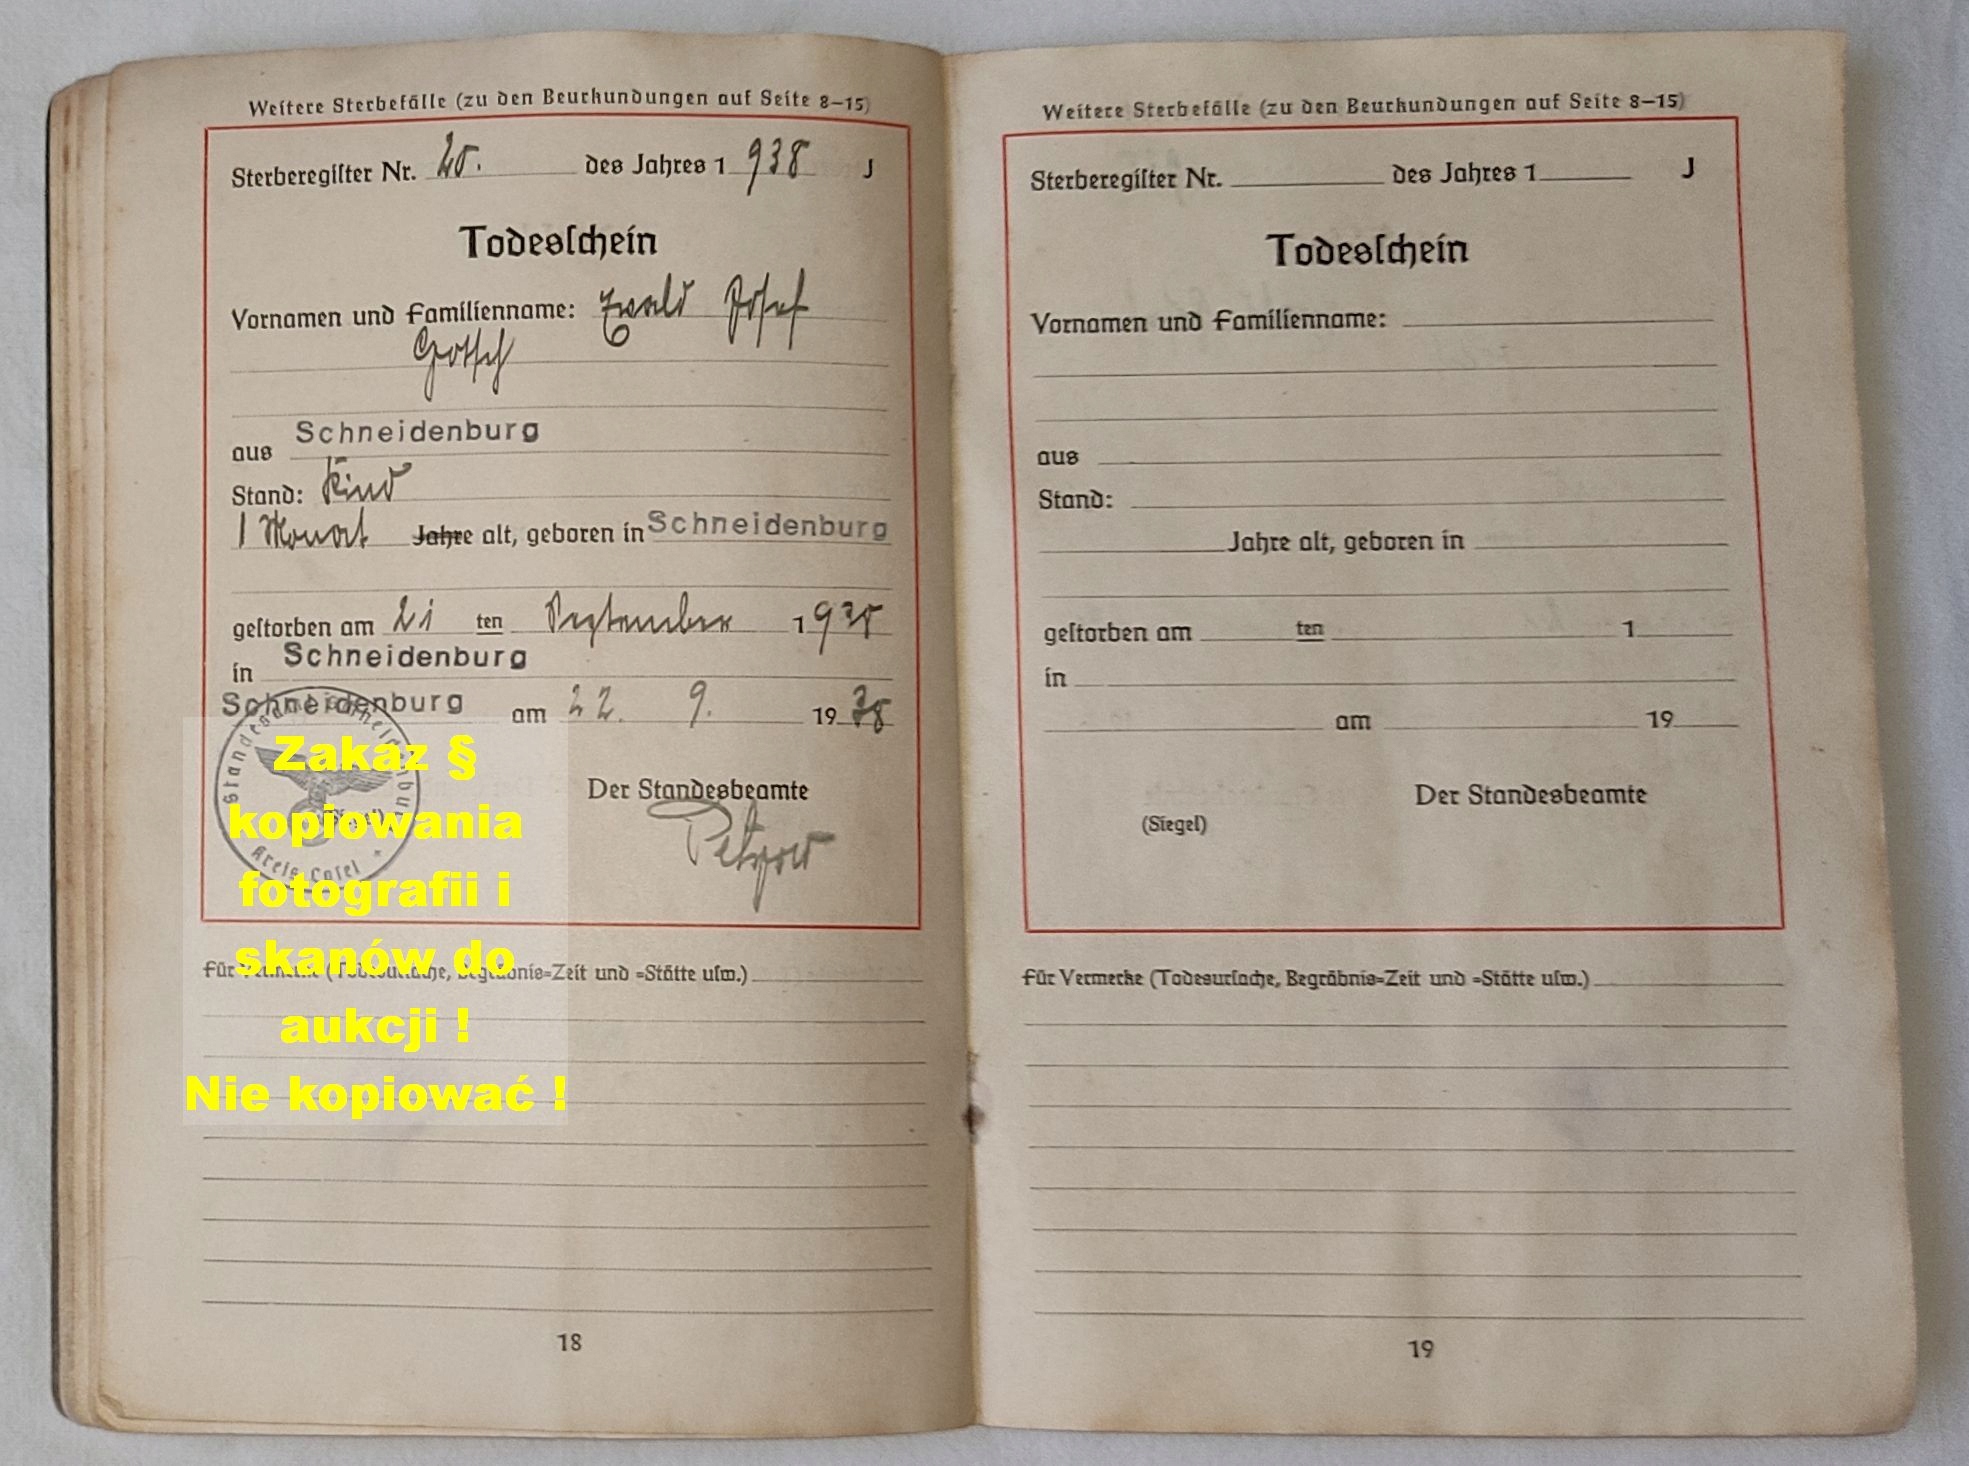 Weitere Sterbefälle (zu den Beurkundungen auf Seite 8–15)
Sterberegister Nr. 25. des Jahres 1938 J
Todesschein
Vornamen und Familienname: Ewald Josef
Gottsch
aus Schneidenburg
Stand: Kind
1 Monat Jahre alt, geboren in Schneidenburg
gestorben am 21 ten September 1938
in Schneidenburg
Schneidenburg am 22. 9. 1938
Standesamt Schneidenburg
(Siegel)
Kreis Cosel
Der Standesbeamte
Zakaz §
kopiowania
fotografii i
skanów do
aukcji !
Nie kopiować !
Für Vermerke (Todesursache, Begräbnis=Zeit und =Stätte usw.)
18
Weitere Sterbefälle (zu den Beurkundungen auf Seite 8–15)
Sterberegister Nr. des Jahres 1 J
Todesschein
Vornamen und Familienname:
aus
Stand:
Jahre alt, geboren in
gestorben am ten 1
in
am 19
Der Standesbeamte
(Siegel)
Für Vermerke (Todesursache, Begräbnis=Zeit und =Stätte usw.)
19